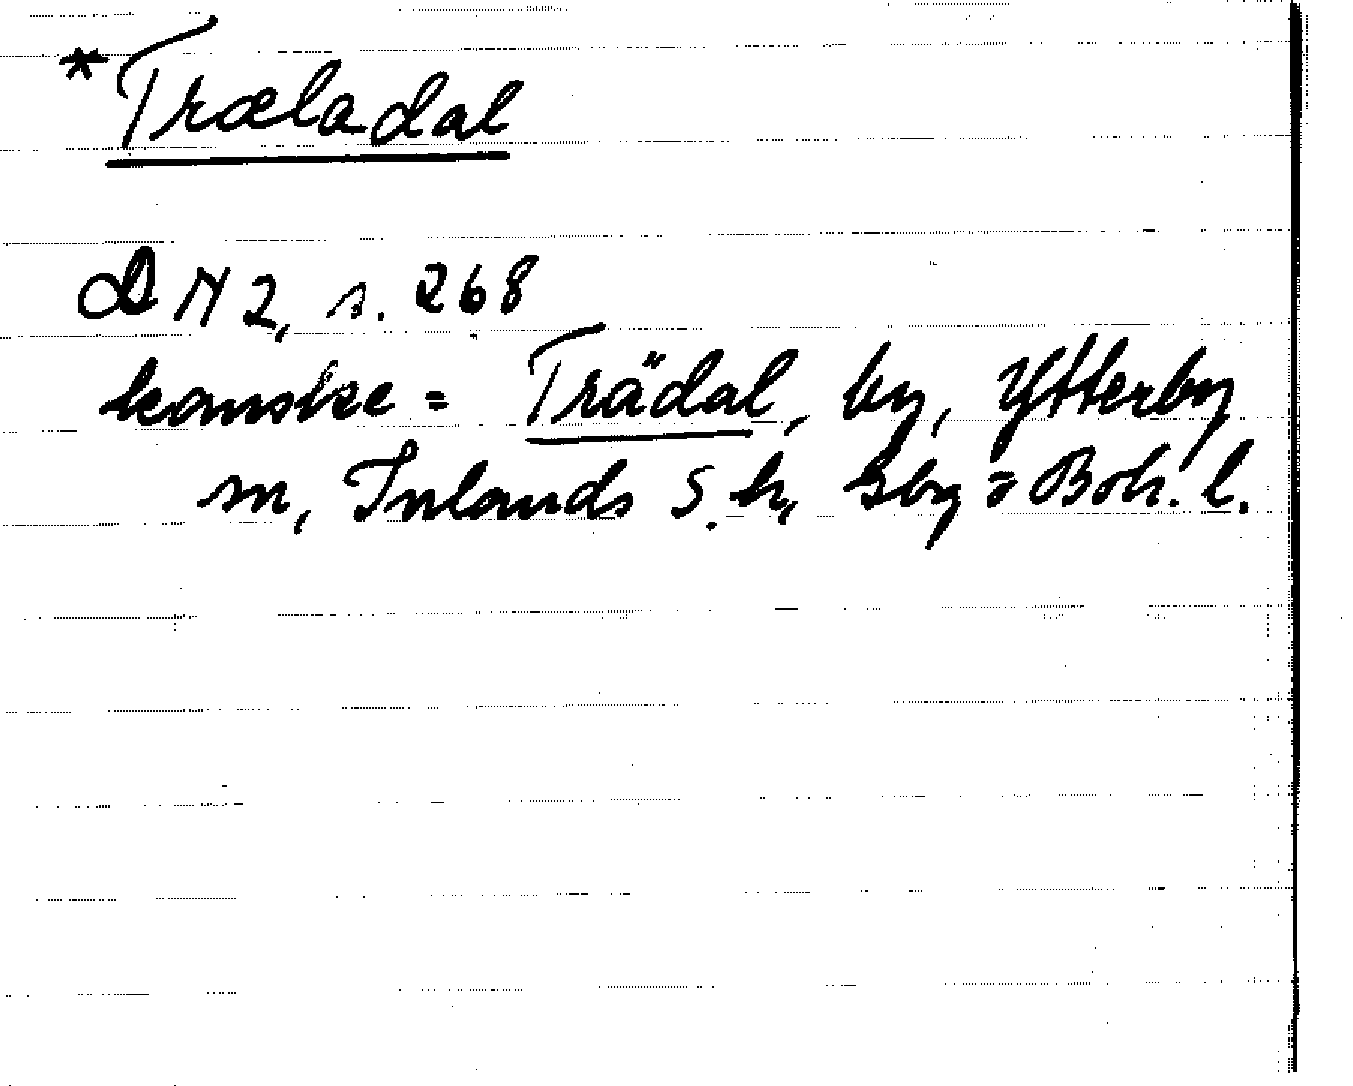 *Træladal
DN 2, s. 268
kanske = Trädal, by, Ytterby
sn, Inlands S. h, Gbg o Boh. l.